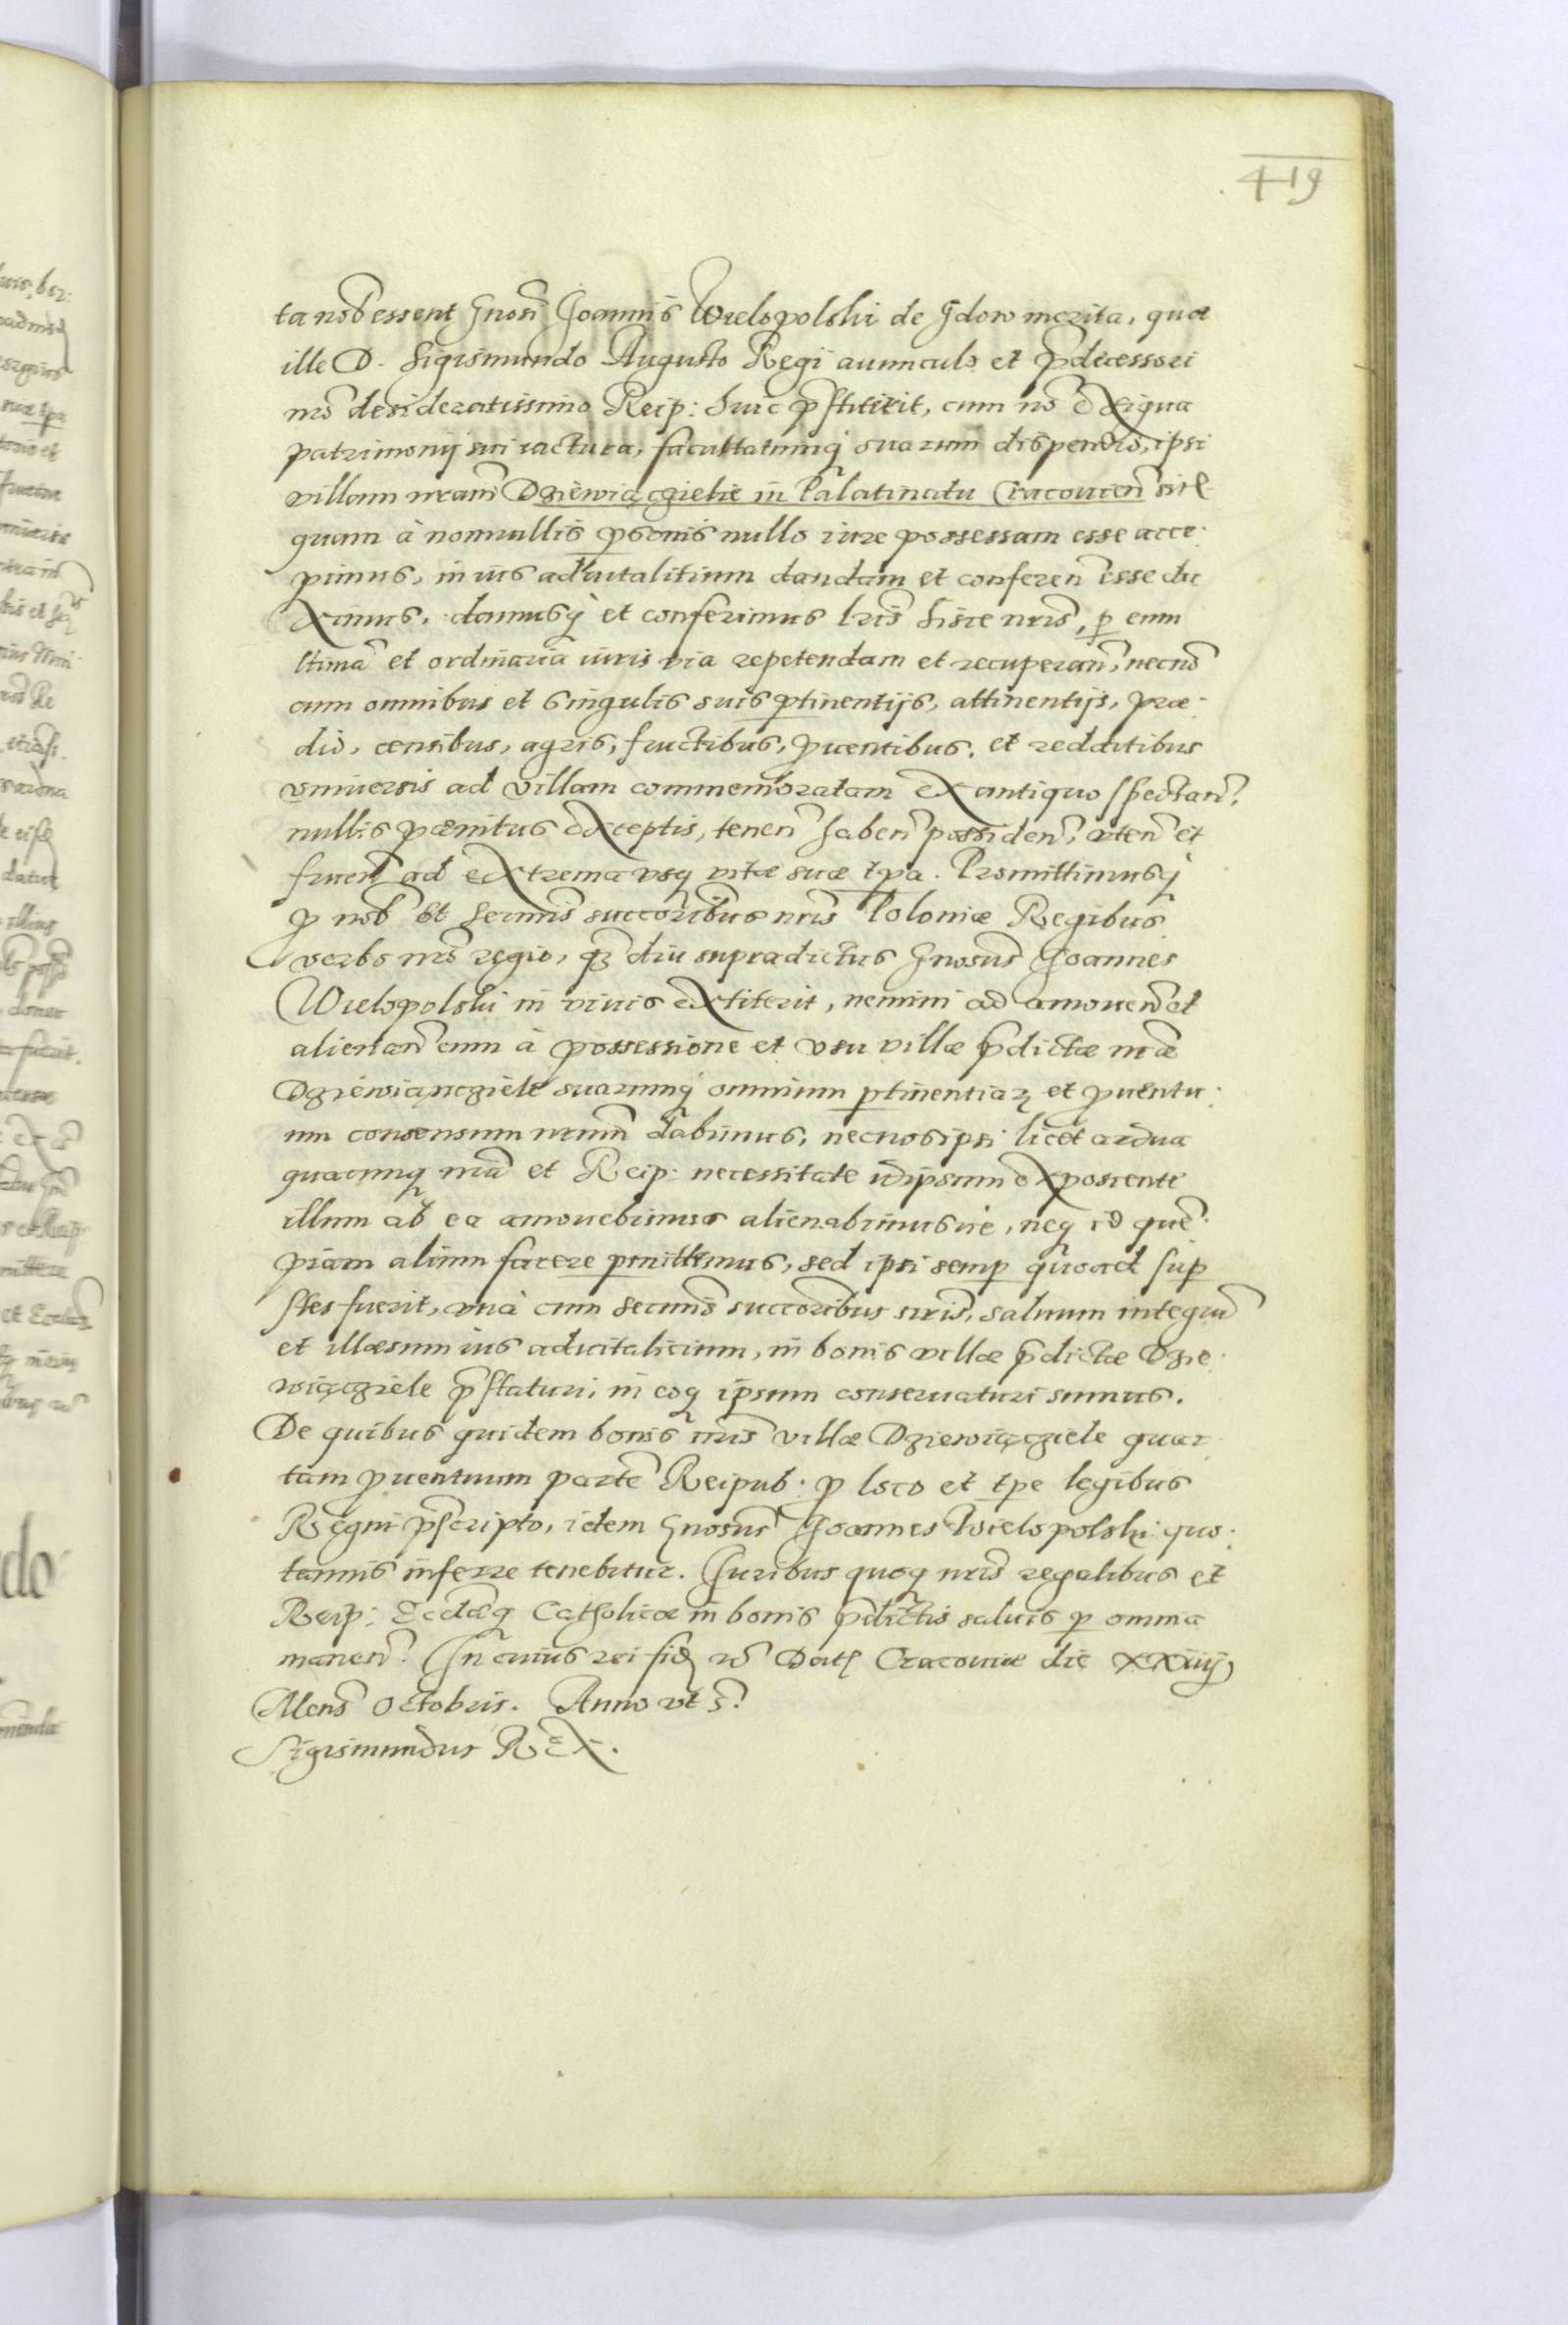 419
ta nob essent Gnosi Joannis Wielopolski de Gdow merita, quæ
ille D. Sigismundo Augusto Regi auunculo et prædecessori
nro desideratissimo Reip: huic p̃stiterit, cum no exigua
patrimonij sui iactura, facultatumq̃ suarum dispendio, ipsi
villam nram Dziewięczicłie in Palatinatu Cracouien sit̃
quam à nonnullis p̱sonis nullo iure possessam esse acce·
pimus, in ius aduitalitium dandam et conferen̄ esse du
ximus, damusq̃ et conferimus lris hisce nris, p̱ eum
ltima et ordinaria iuris via repetendam et recuperan̄, necno
cum omnibus et singulis suis p̱tinentijs, attinentijs, præ·
dio, censibus, agris, fructibus, p̱uentibus, et redditibus
vniuersis ad villam commemoratam ex antiquo spectan̄.
nullis pœnitus exceptis, tenen̄ haben̄ possiden̄, vten̄ et
fruen̄ ad extrema vsq̃ vitæ suæ tp̃a. Promittimusq̃
p̱ nob et sermis succoribus nris Poloniæ Regibus
verbo nro regio, q̃ diu supradictus Gnosus Joannes
Wielopolski in viuis extiterit, nemini ad amouen̄ et
alienan̄ eum à possessione et vsu villæ p̃dictæ nræ
Dziewiąnczielė suarumq̃ omnium p̱tinentiaꝝ et p̱uentu·
um consensum nrum dabimus, nec nos ipsi licet ardua
quacunq̃ nra et Reip: necessitate idipsum exposcente
illum ab ea amouebimus alienabimusue, neq̃ id quem·
piam alium facere p̱mittemus, sed ipsi semp̱ quoad sup̱
stes fuerit, vnà cum sermis succoribus nris, saluum integrū
et illæsum ius aduitalicium, in bonis villæ p̃dictæ Dzie·
wiączielе p̃staturi, in eoq̃ ipsum conseruaturi sumus.
De quibus quidem bonis nris villæ Dziewiącziele quar
tam p̱uentuum parte Reipub. p̱ loco et tp̃e legibus
Regni p̃scripto, idem Gnosus Joannes Wielopolski quo·
tannis inferre tenebitur. Juribus quoq̃ nris regalibus et
Reip: Ecclæq̃ Catholicæ in bonis p̃dictis saluis p̱ omnia
manen̄. In cuius rei fid Dat Cracouiæ die xxiiij
Mens Octobris. Anno vt s.
Sigismundus Rex.